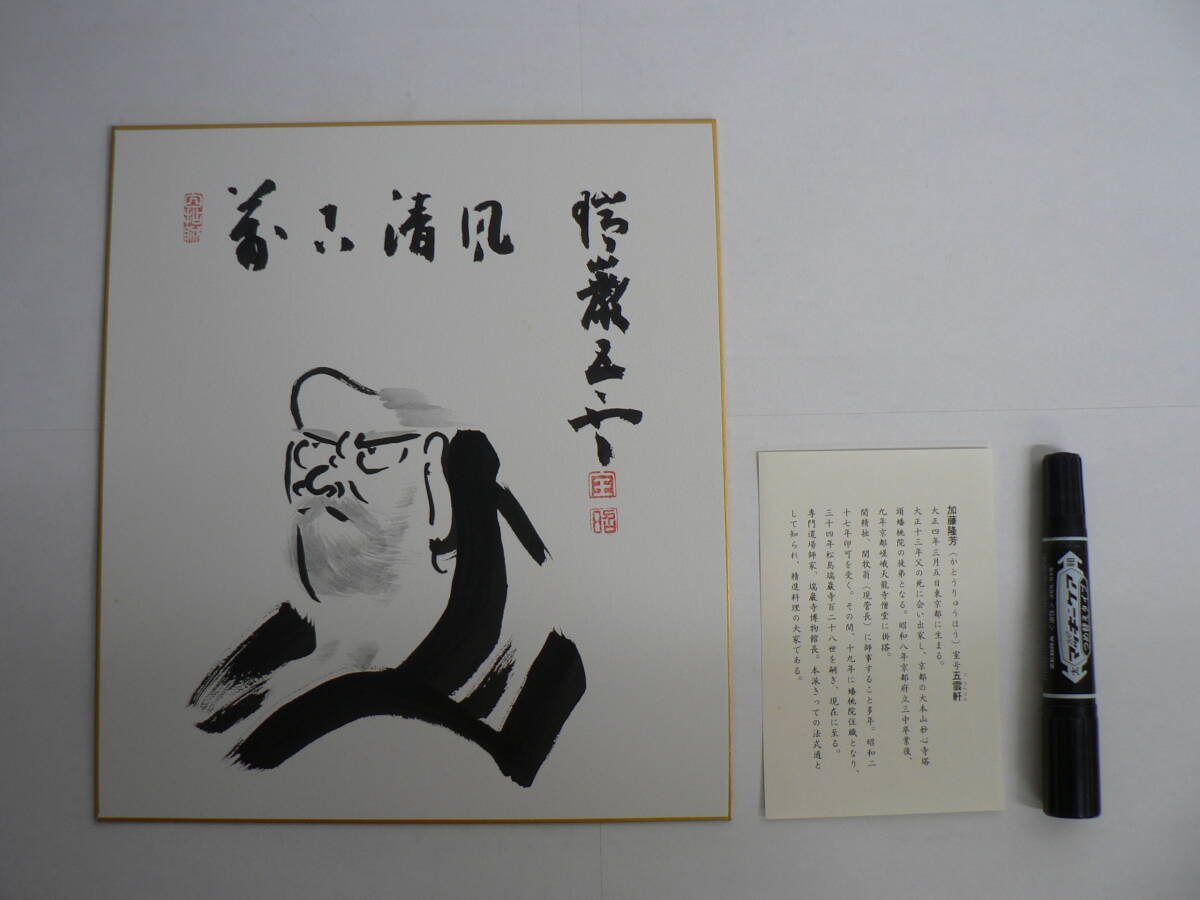 萬古清風
瑞巌五雲
加藤隆芳（かとうりゅうほう）室号五雲軒
大正四年三月五日東京都に生まる。
大正十三年父の死に会い出家し、京都の大本山妙心寺塔
頭蟠桃院の徒弟となる。昭和八年京都府立三中卒業後、
九年京都嵯峨天龍寺僧堂に掛搭。
関精拙、関牧翁（現管長）に師事すること多年。昭和二
十七年印可を受く。その間、十九年に蟠桃院住職となり、
三十四年松島瑞巌寺百二十八世を嗣ぎ、現在に至る。
専門道場師家、瑞巌寺博物館長。本派きっての法式通と
して知られ、精進料理の大家である。
マッキーケア